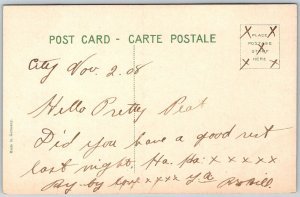 POST CARD - CARTE POSTALE
PLACE
POSTAGE
STAMP
HERE
X X
X
X X
City Nov. 2. 08
Hello Pretty Peat
Did you have a good rest
last night. Ha. Ha. x x x x x
By-by love x x x x
Made in Germany